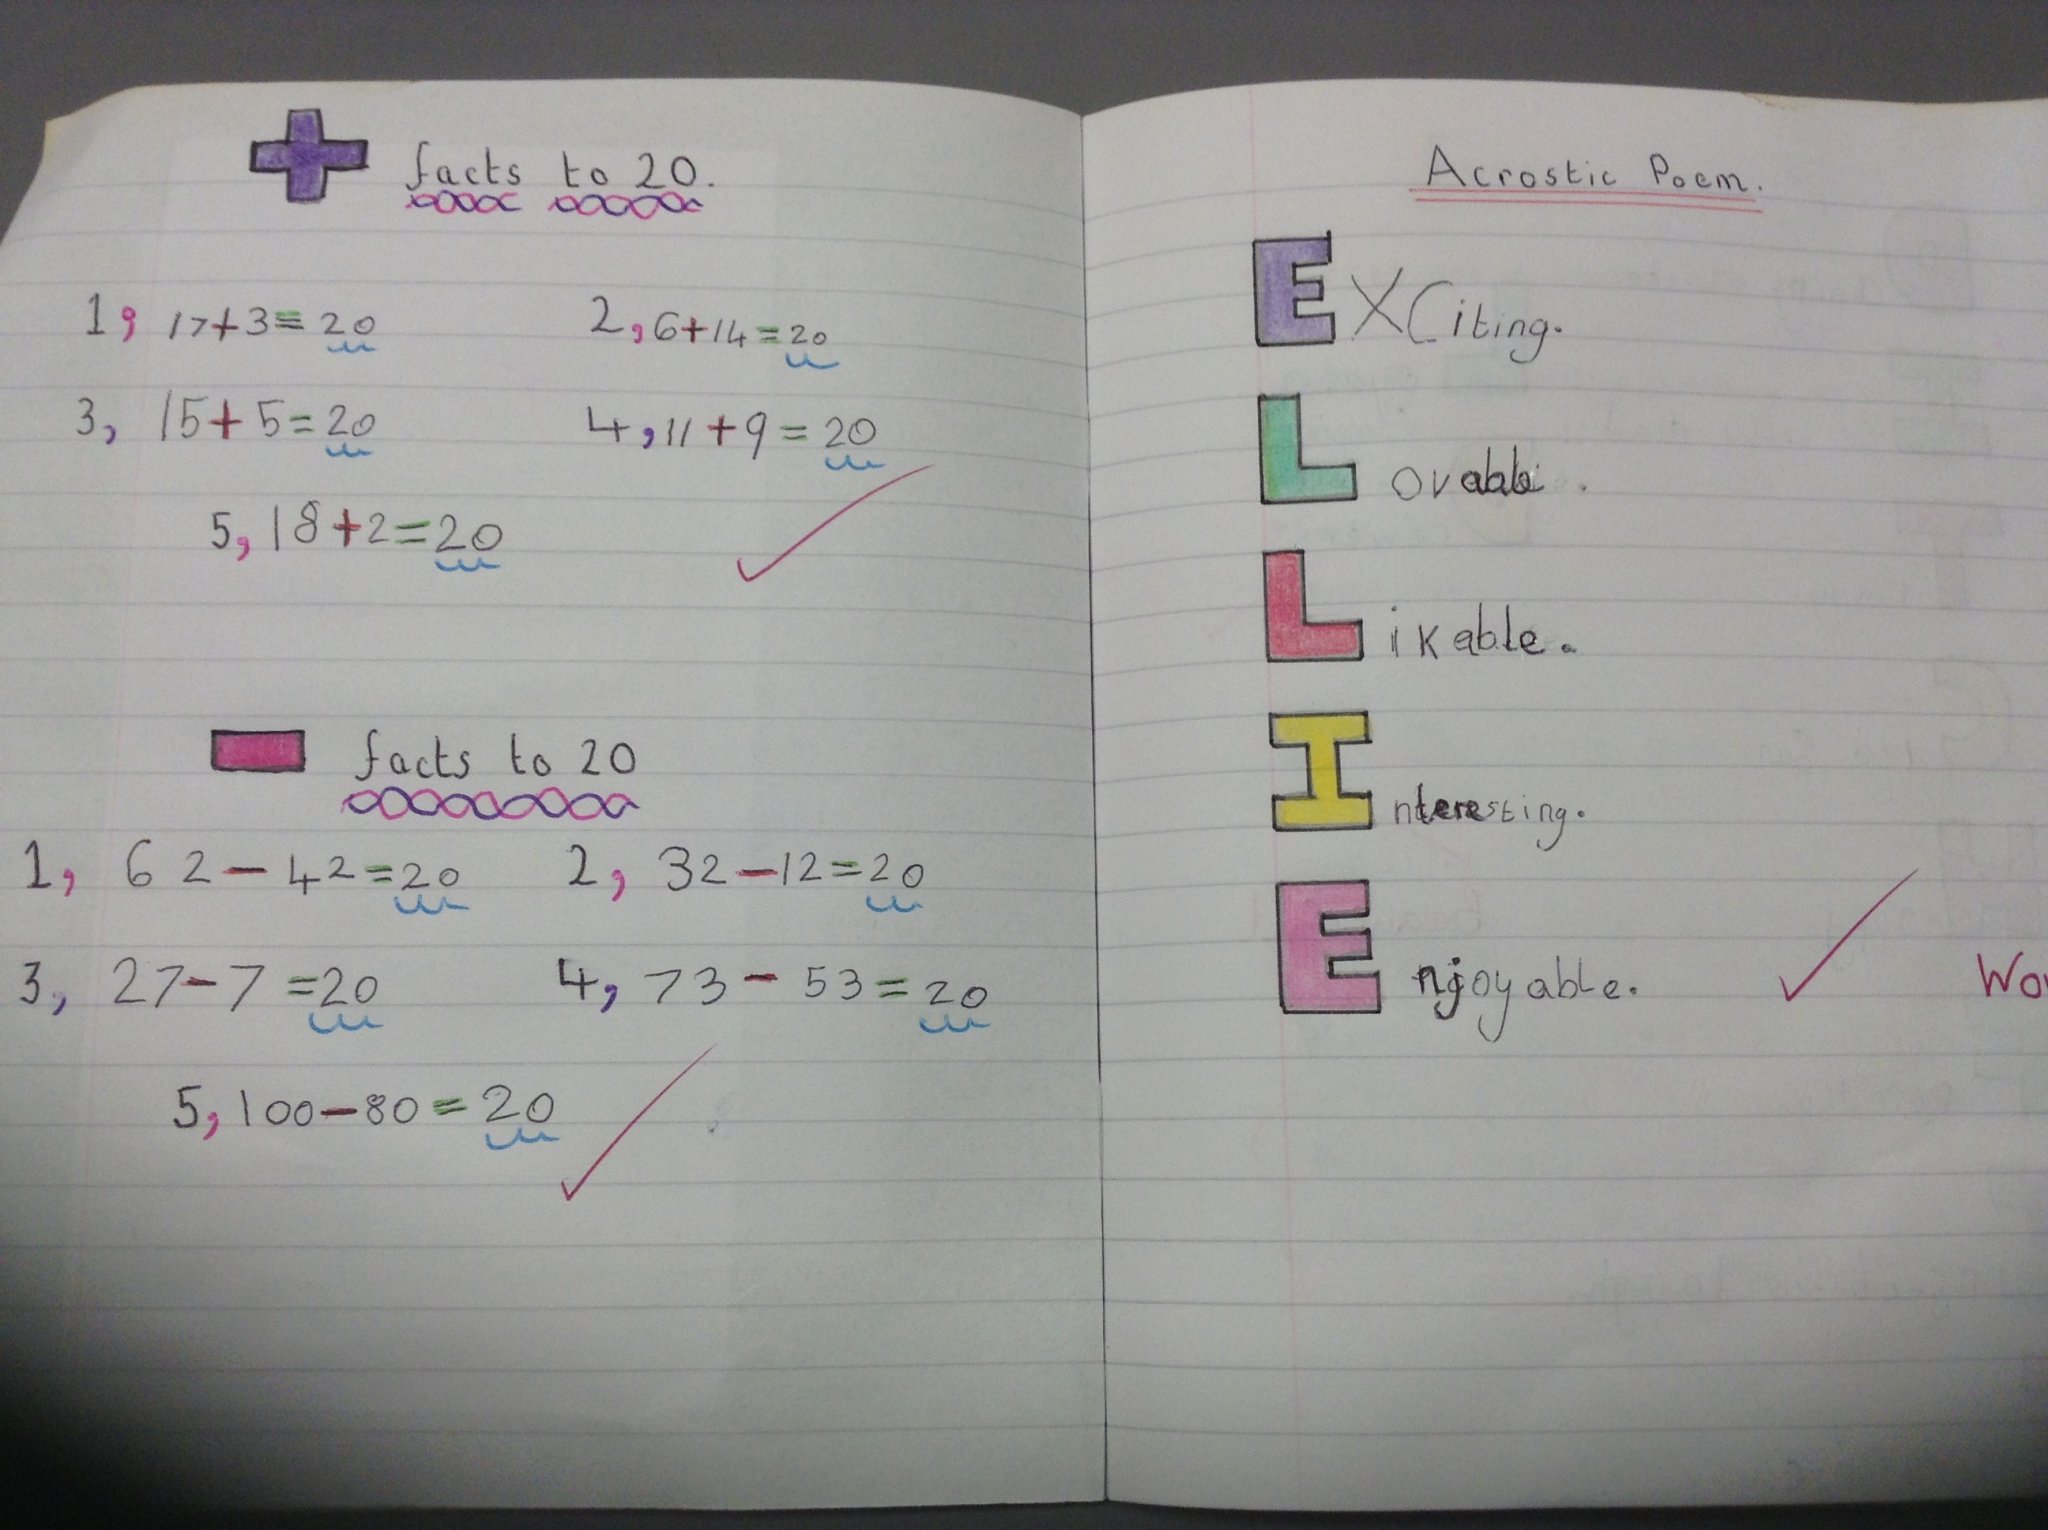 + facts to 20.
1, 17+3=20 2, 6+14=20
3, 15+5=20 4, 11+9=20
5, 18+2=20
- facts to 20
1, 62-42=20 2, 32-12=20
3, 27-7=20 4, 73-53=20
5, 100-80=20
Acrostic Poem.
EXCiting.
Lovable.
Likable.
Interesting.
Enjoyable.